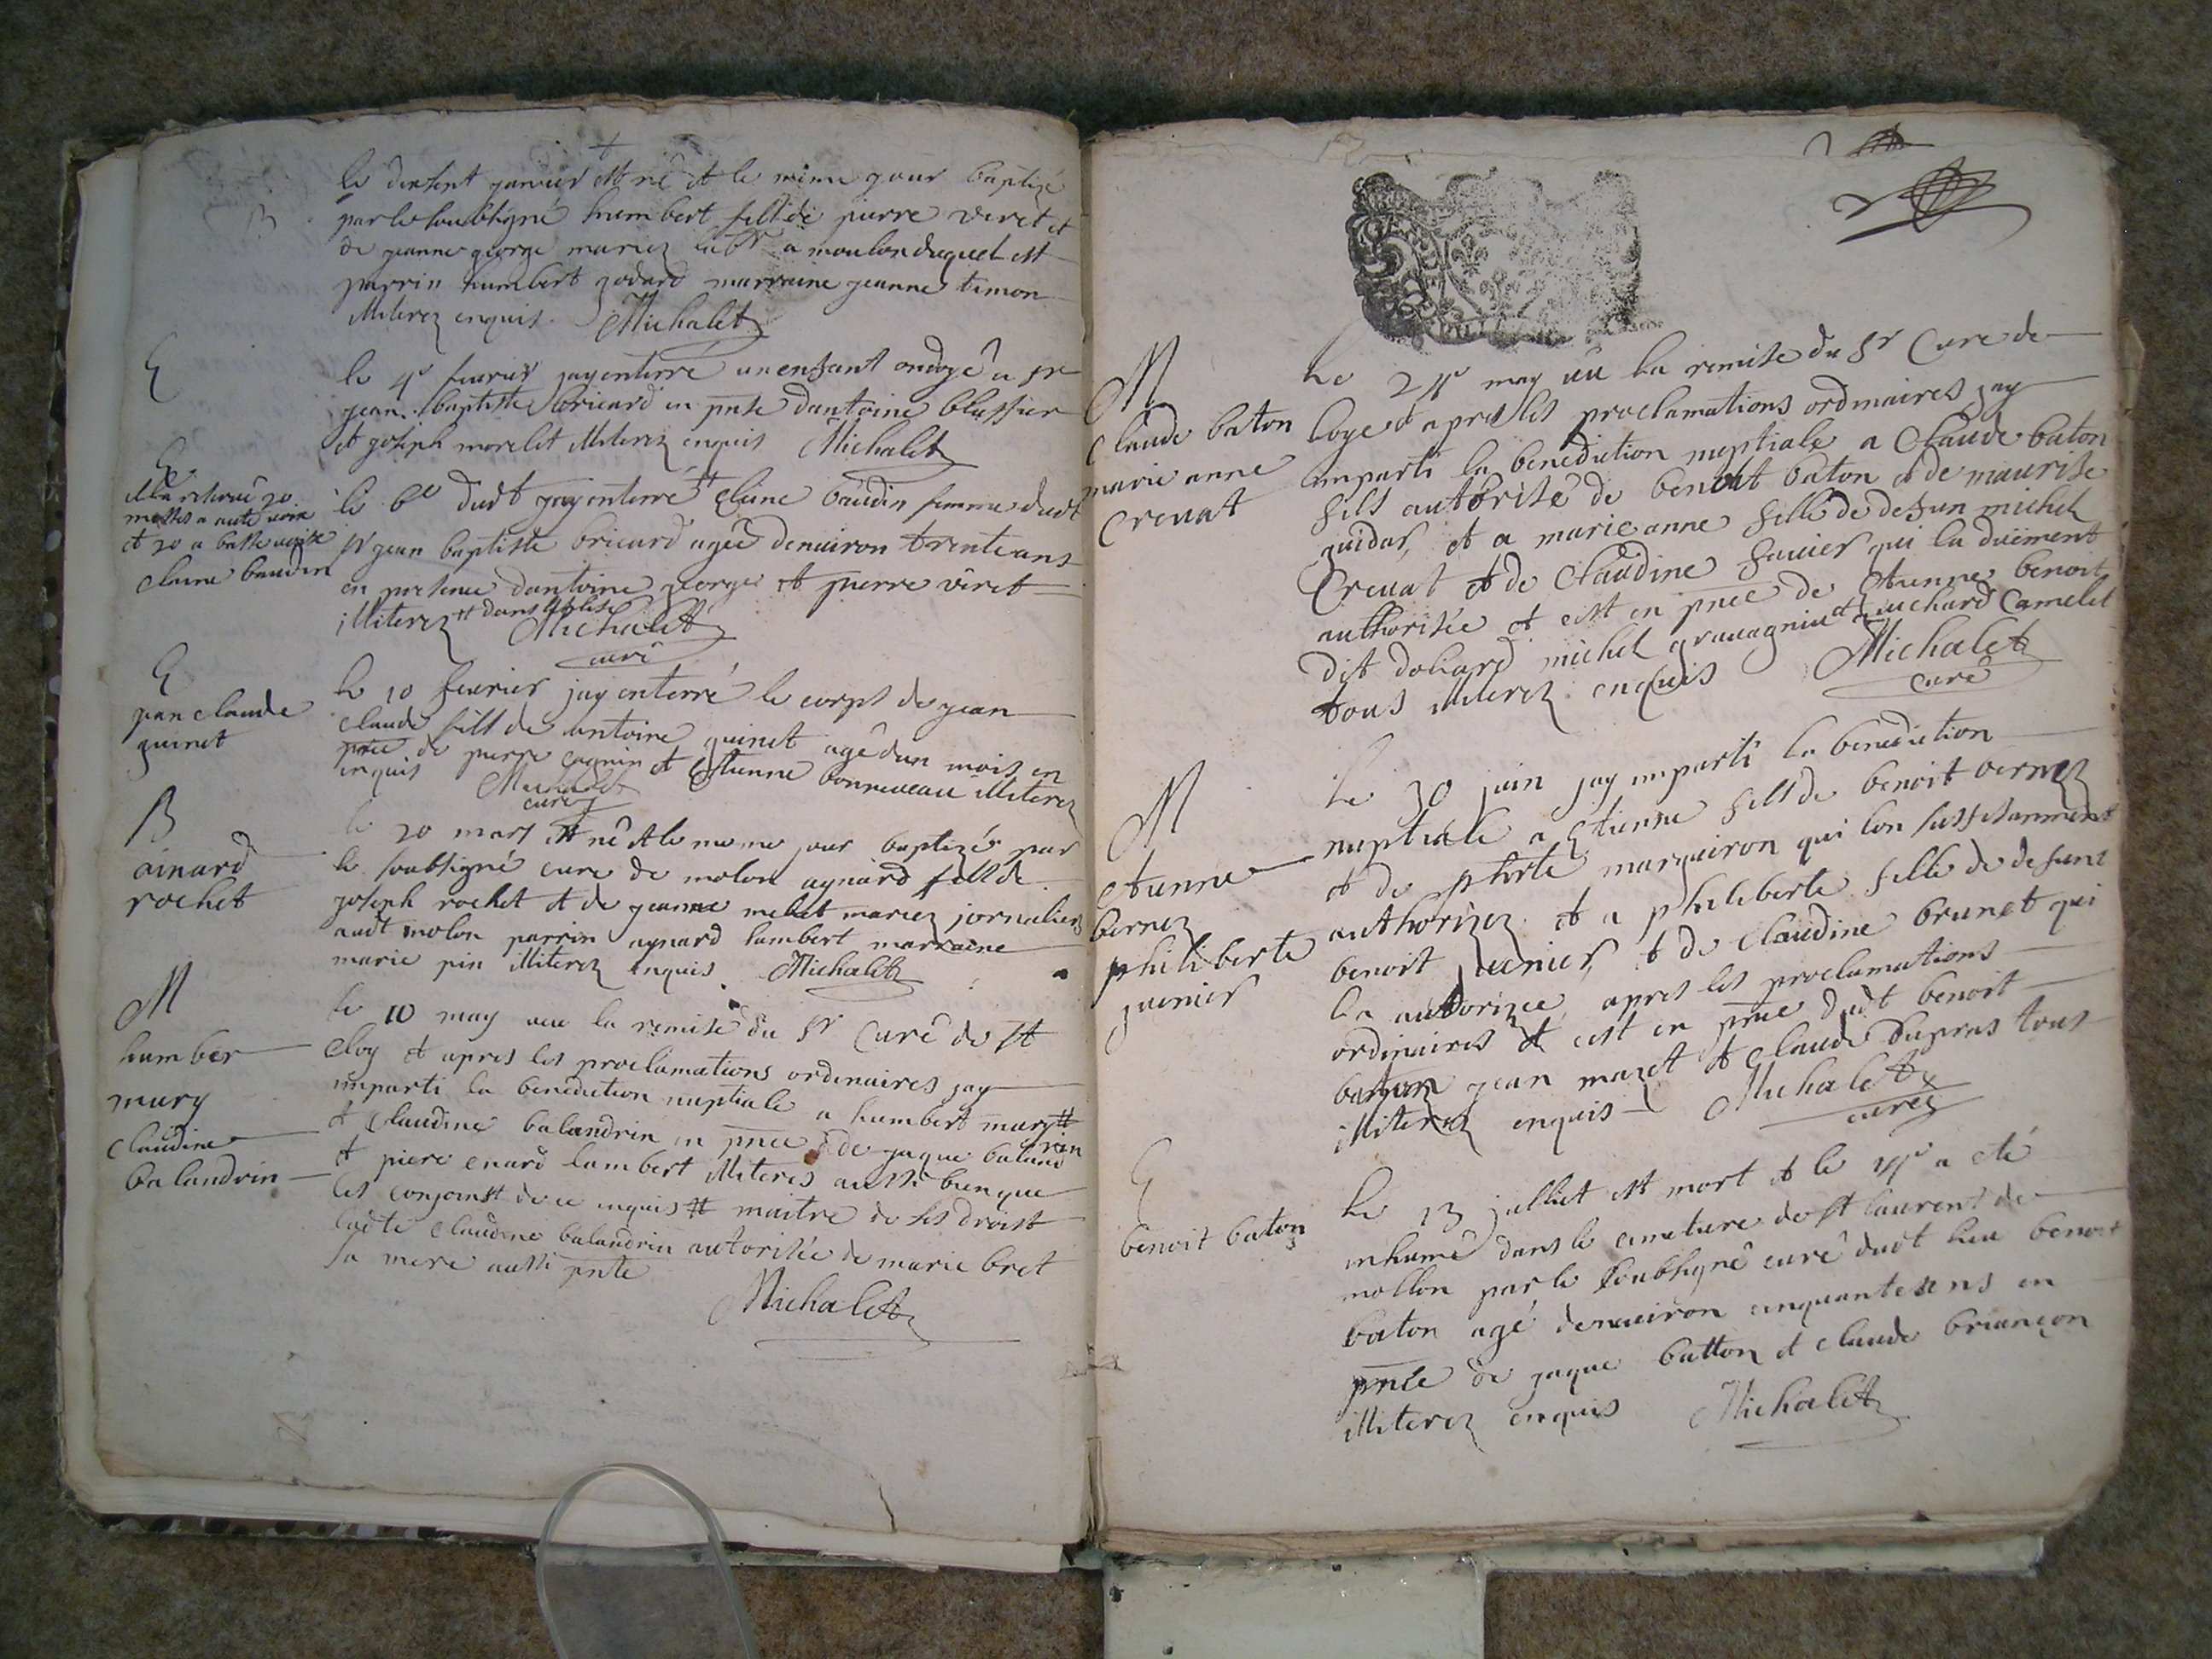 le dixsept janvier est né et le même jour baptizé
par le soubsigné humbert fils de pierre viret et
de jeanne george mariez a moulon duquel est
parrin humbert godard marraine jeanne timon
illiterez enquis. Michalet
E
le 4e fevrier jay enterré un enfant ondoyé a sr
jean baptiste bricard en pnse dantoine blassier
et joseph morelet illiterez enquis Michalet
E
messes a aute voix
et 20 a basse
claine baudin
le 6e dudt jay enterré # claine baudin femme dudt
sr jean baptiste bricard agée denviron trente ans
en presence dantoine george et pierre viret
illiterez # dans
Michalet
curé
E
jean claude
guinet
le 10 fevrier jay enterré le corps de jean
claude fils de antoine guinet agé dun mois en
pnce de pierre et etienne bonneveau illiterez
enquis Michalet
curé
B
ainard
rochet
le 20 mars est né et le meme jour baptizé par
le soubsigné curé de molon aynard fils de
joseph rochet et de jeanne melet mariez jornaliers
audt molon parrin aynard humbert marraine
marie pin illiterez enquis. Michalet
M
humber
mury
claudine
balandrin
le 10 may veu la remise du sr Curé de st
eloy et apres les proclamations ordinaires jay
imparti la benediction nuptiale a humbert mury #
et claudine balandrin en pnce de jaque baland
rin
et piere enard lambert illiteres aussi bien que
les conjoinst de ce enquis # maitre de ses droist
ladte claudine balandrin autorisée de marie bret
sa mere aussi pnte
Michalet
M
Claude baton
marie anne
Crevat
Le 24e may vû la remise du sr Curé de
loye et apres les proclamations ordinaires jay
imparti la benediction nuptiale a Claude baton
fils autorisé de benoit baton et de maurise
guidas, et a marie anne fille de defun michel
Crevat et de Claudine favier qui la duëment
authorisée et est en pnce de etienne benoit
dit doliard michel gravagnin et richard Camelet
tous illiterez enquis Michalet
curé
M
etienne
bernez
philiberte
juenier
Le 30 juin jay imparti la benediction
nuptiale a Etienne fils de benoit vernez
et de phrte marguiron qui lon suffisamment
authorizez. et a philiberte fille de defunt
benoit juenier, et de Claudine brunet qui
la autorizee, apres les proclamations
ordinaires et cest en pnce dudt benoit
jean mazet et claude dupras tous
illiterez enquis Michalet
curé
E
benoit baton
Le 13 julliet est mort et le 14e a eté
inhumé dans le cimetiere de st laurent de
mollon par le soubsigné curé dudt lieu benoit
baton agé denviron cinquante ans en
pnce de jaque batton et claude briançon
illiterez enquis Michalet